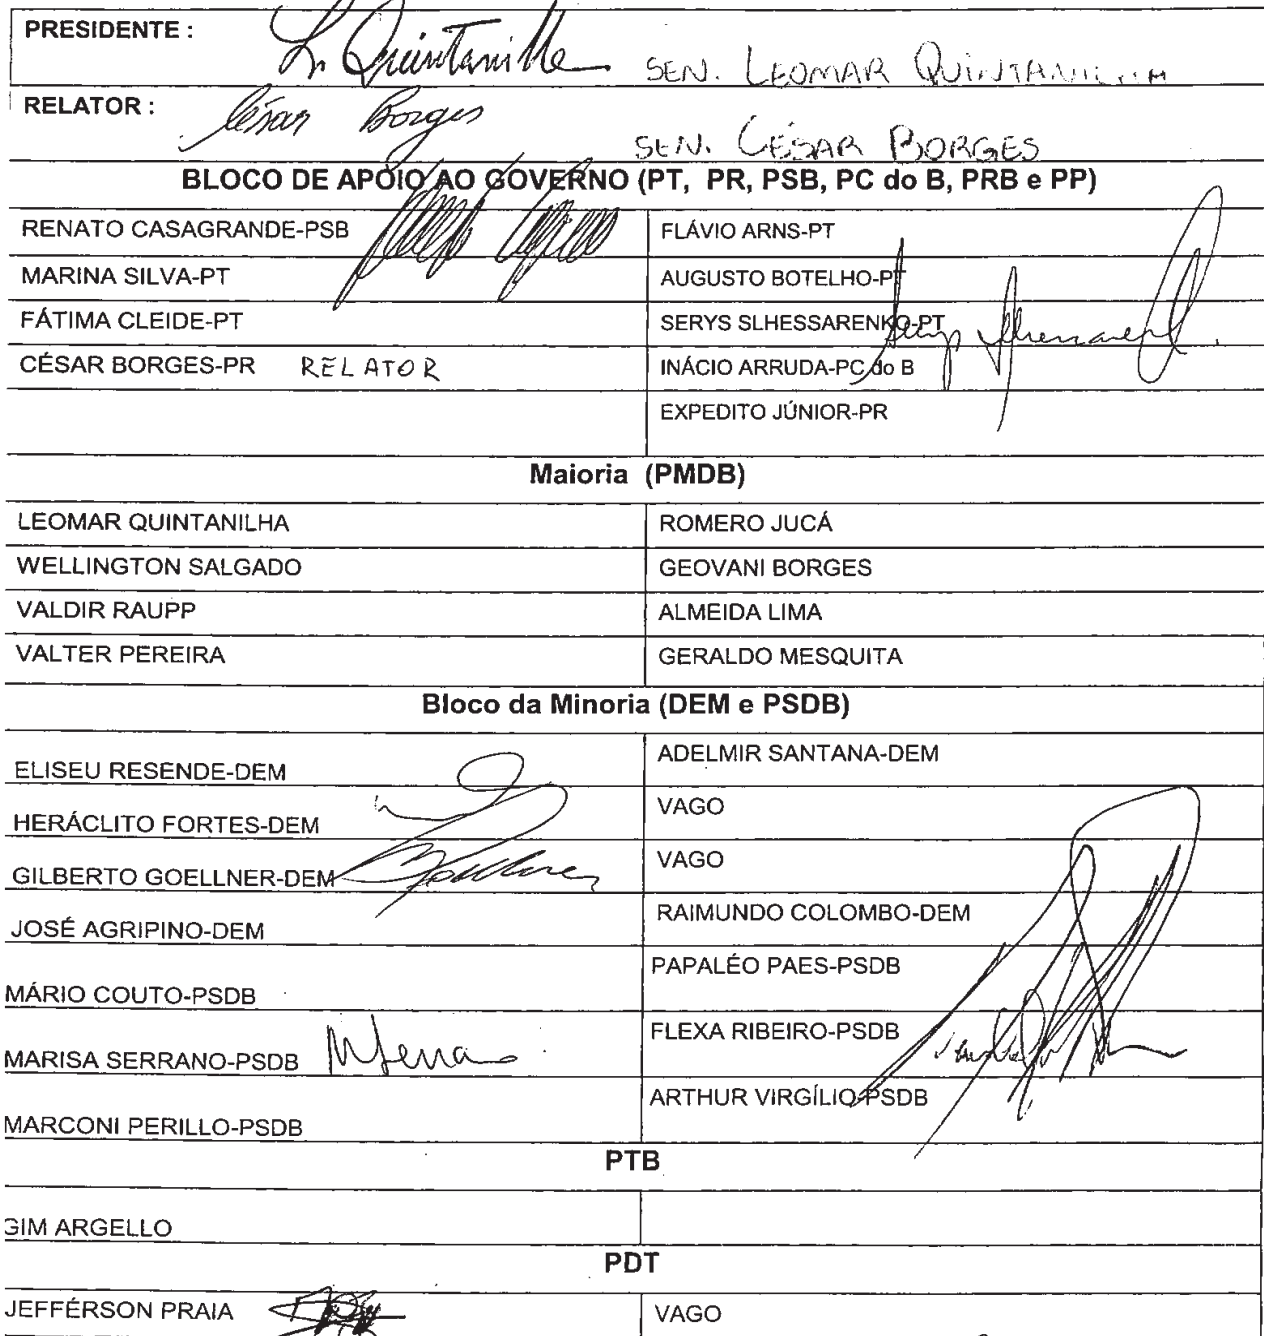 PRESIDENTE : L. Quintanilha SEN. LEOMAR QUINTANILHA
RELATOR : César Borges SEN. CÉSAR BORGES
BLOCO DE APOIO AO GOVERNO (PT, PR, PSB, PC do B, PRB e PP)
RENATO CASAGRANDE-PSB FLÁVIO ARNS-PT
MARINA SILVA-PT AUGUSTO BOTELHO-PT
FÁTIMA CLEIDE-PT SERYS SLHESSARENKO-PT
CÉSAR BORGES-PR RELATOR INÁCIO ARRUDA-PC do B
EXPEDITO JÚNIOR-PR
Maioria (PMDB)
LEOMAR QUINTANILHA ROMERO JUCÁ
WELLINGTON SALGADO GEOVANI BORGES
VALDIR RAUPP ALMEIDA LIMA
VALTER PEREIRA GERALDO MESQUITA
Bloco da Minoria (DEM e PSDB)
ELISEU RESENDE-DEM ADELMIR SANTANA-DEM
HERÁCLITO FORTES-DEM VAGO
GILBERTO GOELLNER-DEM VAGO
JOSÉ AGRIPINO-DEM RAIMUNDO COLOMBO-DEM
MÁRIO COUTO-PSDB PAPALÉO PAES-PSDB
MARISA SERRANO-PSDB FLEXA RIBEIRO-PSDB
MARCONI PERILLO-PSDB ARTHUR VIRGÍLIO-PSDB
PTB
GIM ARGELLO
PDT
JEFFÉRSON PRAIA VAGO